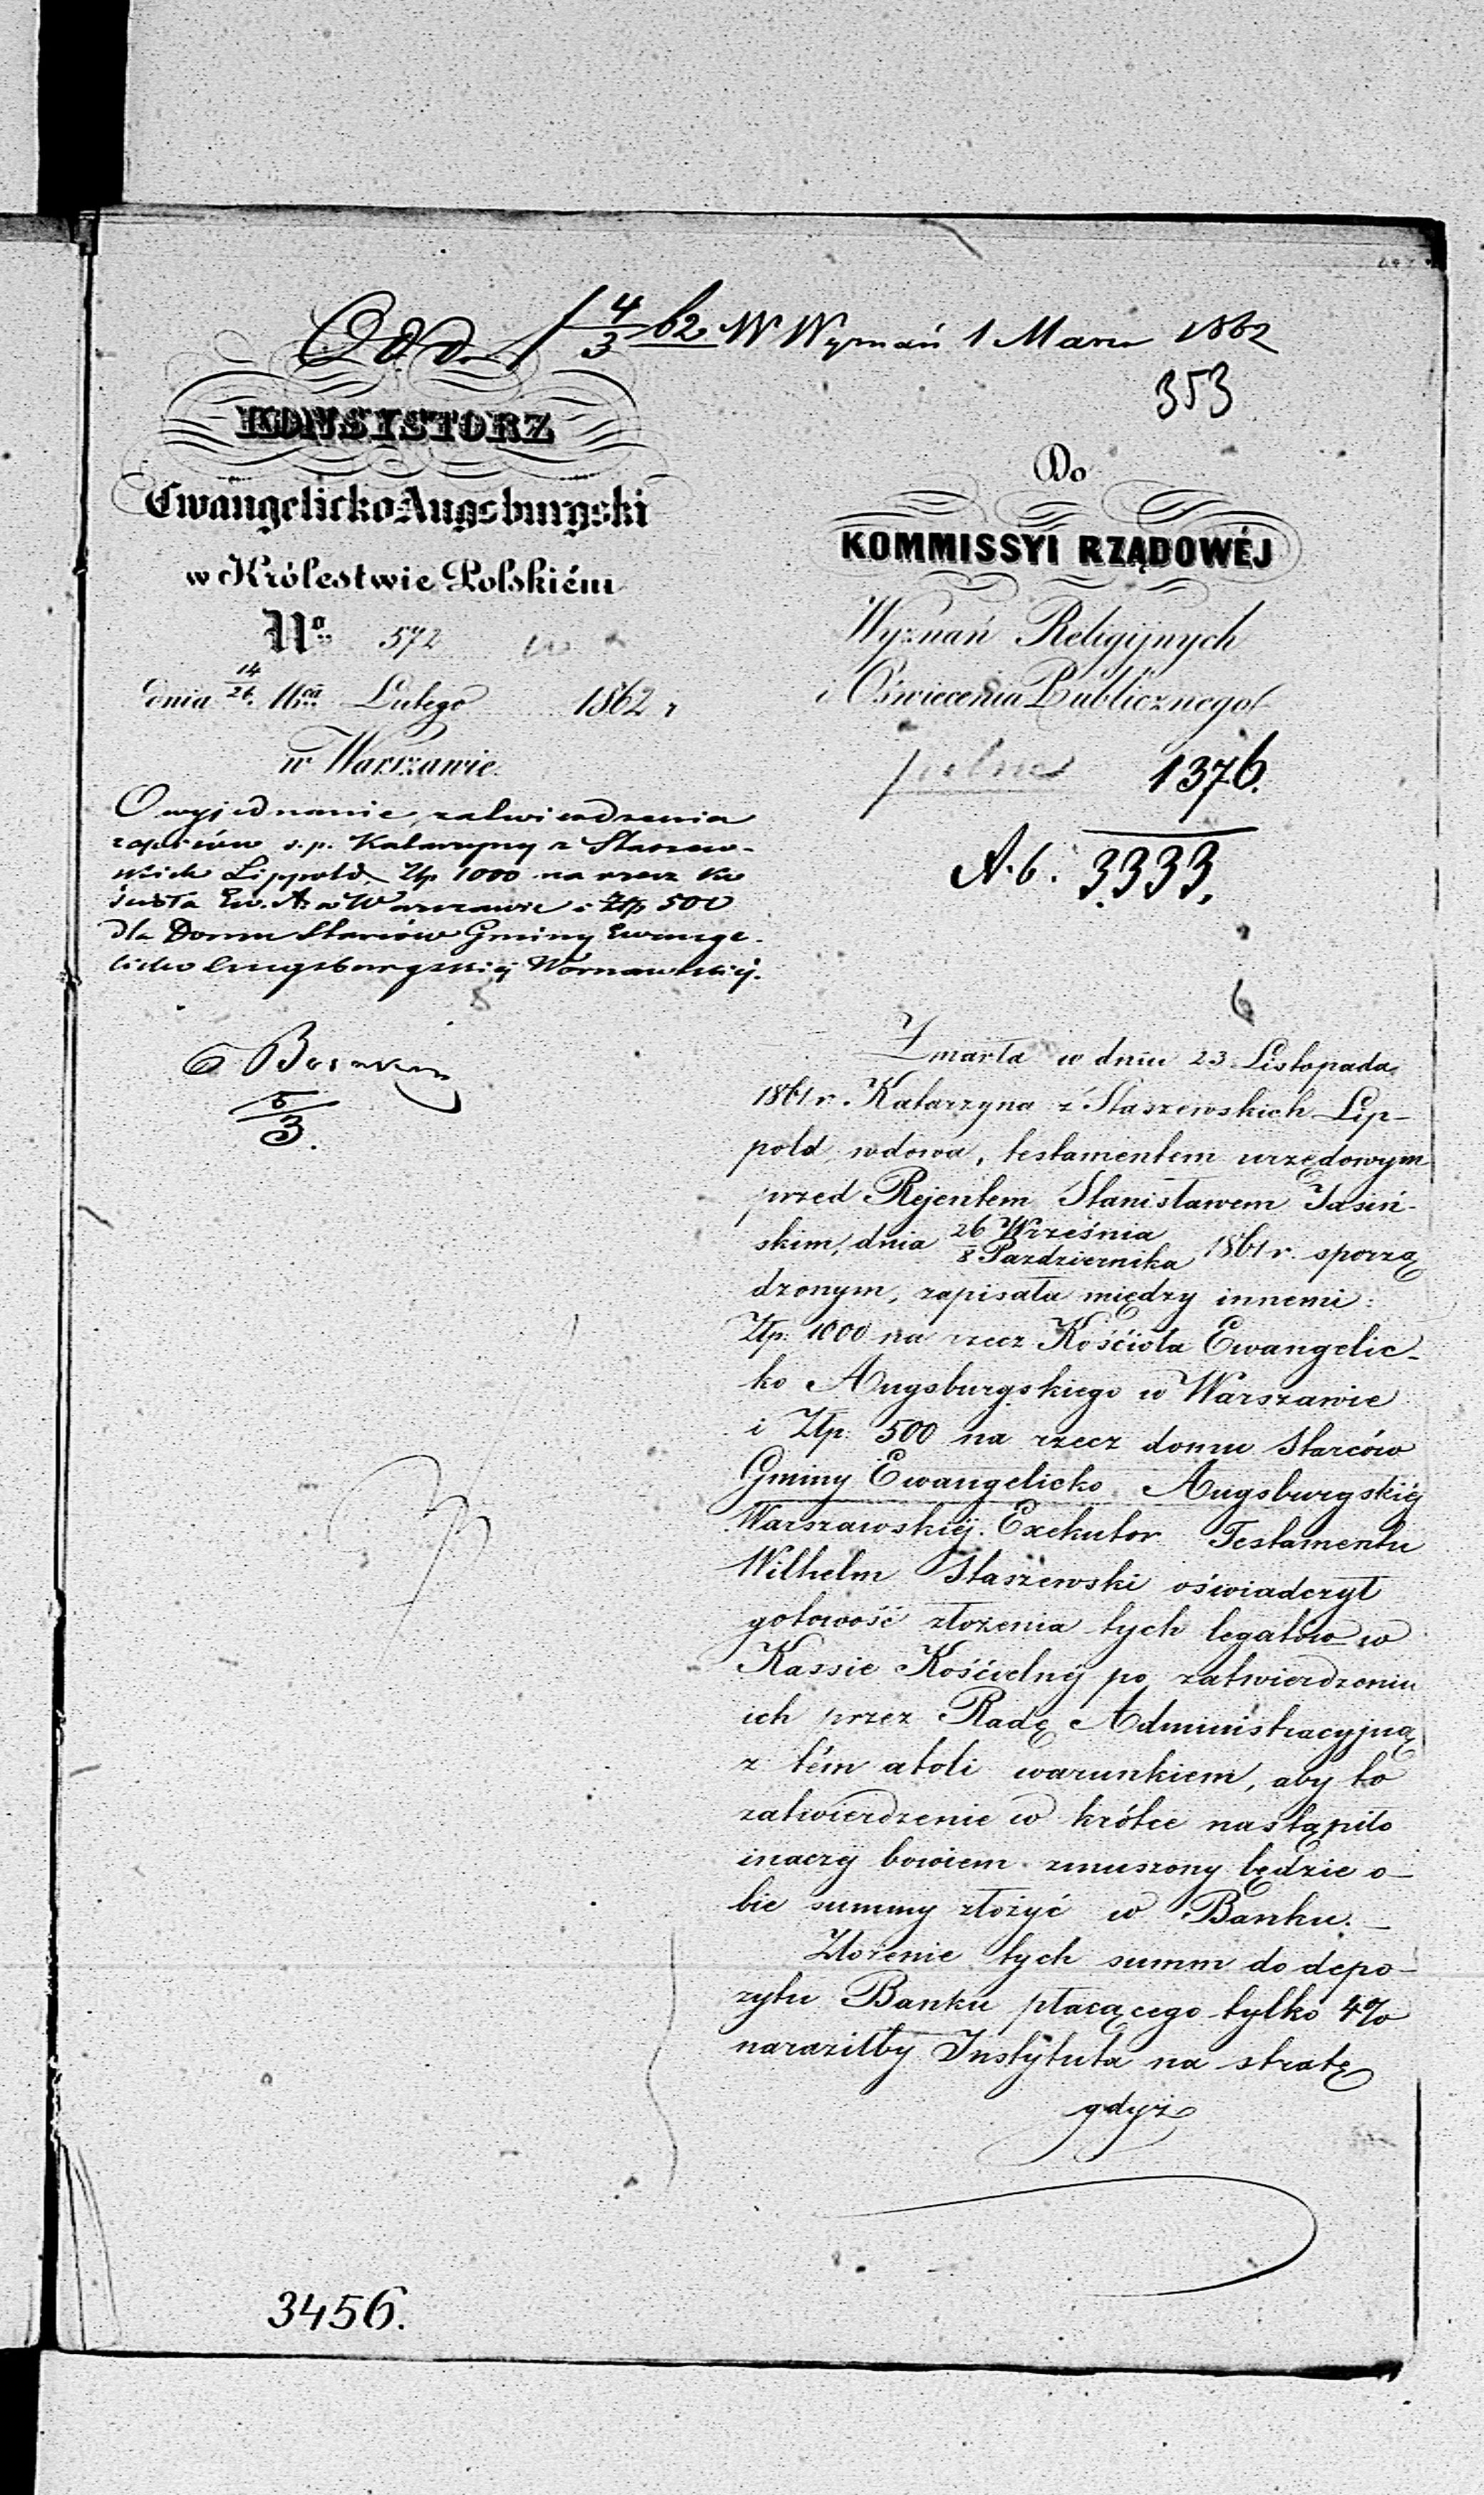 4/3 62 W Wyznań 1 Marca 1862
353
KONSYSTORZ
Ewangelicko-Augsburgski
w Królestwie Polskiém
No 572
dnia 14/26 Mca Lutego 1862 r
w Warszawie.
O wyjednanie zatwierdzenia
zapisów s.p. Katarzyny z Staszew-
skich Lippold, Złp 1000 na rzecz Ko
ścioła Ew. A. w Warszawie i Złp 500
dla Domu Starców Gminy Ewange-
licko Augsburgskiej Warszawskiej.
5/3.
Do
KOMMISSYI RZĄDOWÉJ
Wyznań Religijnych
i Oświecenia Publicznego
pilne 1376.
A. 6. 3333.
6
Zmarła w dniu 23 Listopada
1861 r. Katarzyna z Staszewskich Lip-
pold, wdowa, testamentem urzędowym
przed Rejentem Stanisławem Jasiń-
skim, dnia 26 Września / 8 Październiка 1861 r. sporzą
dzonym, zapisała między innemi:
Złp. 1000 na rzecz Kościoła Ewangelic-
ko Augsburgskiego w Warszawie
i Złp. 500 na rzecz domu Starców
Gminy Ewangelicko Augsburgskiéj
Warszawskiéj. Exekutor Testamentu
Wilhelm Staszewski oświadczył
gotowość złożenia tych legatów w
Kassie Kościelnéj po zatwierdzeniu
ich przez Radę Administracyjną
z tém atoli warunkiem, aby to
zatwierdzenie w krótce nastąpiło
inaczéj bowiem zmuszony będzie o-
bie summy złożyć w Banku. —
Złożenie tych summ do depo-
zytu Banku płacącego tylko 4%
naraziłby Instytuta na stratę
gdyż
3456.